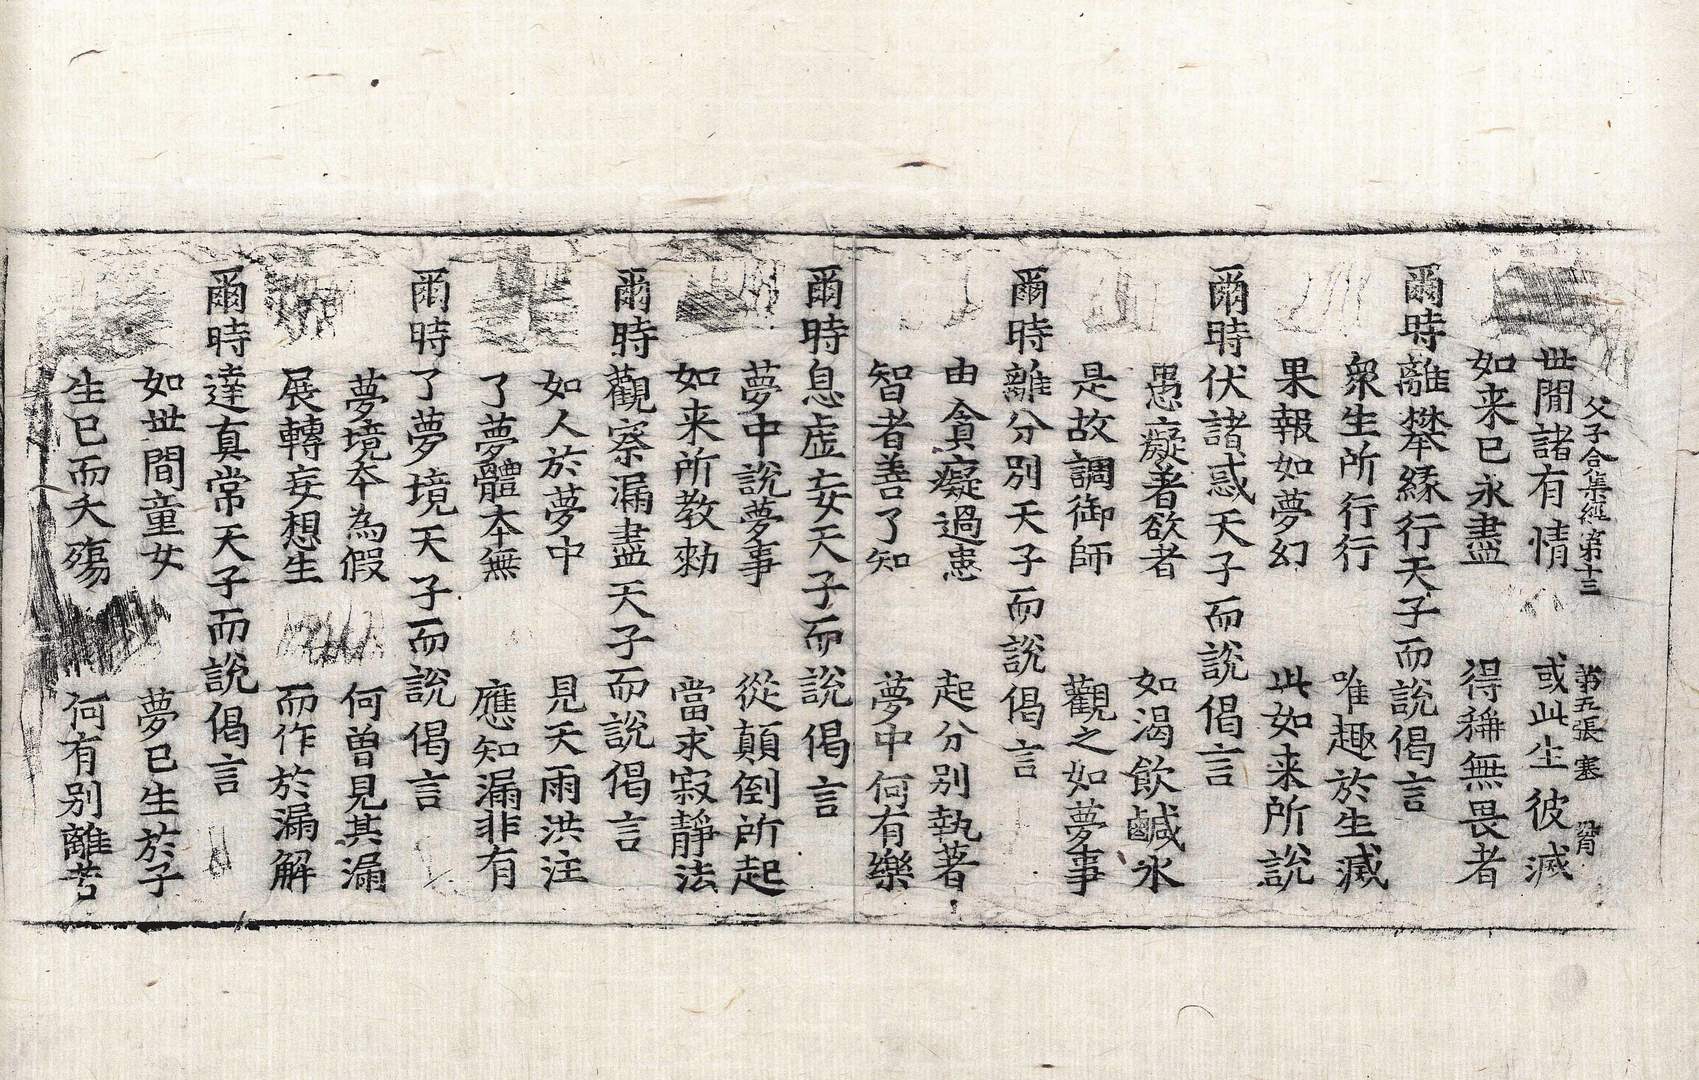 父子合集經第十三 第五張 塞
世間諸有情 或此生彼滅
如来已永盡 得稱無畏者
爾時離攀緣行天子而說偈言
衆生所行行 唯趣於生滅
果報如夢幻 此如来所說
爾時伏諸惑天子而說偈言
愚癡著欲者 如渴飲鹹水
是故調御師 觀之如夢事
爾時離分別天子而說偈言
由貪癡過患 起分別執著
智者善了知 夢中何有樂
爾時息虛妄天子而說偈言
夢中說夢事 從顛倒所起
如来所教勑 當求寂靜法
爾時觀察漏盡天子而說偈言
如人於夢中 見天雨洪注
了夢體本無 應知漏非有
爾時了夢境天子而說偈言
夢境本為假 何曾見其漏
展轉妄想生 而作於漏解
爾時達真常天子而說偈言
如世間童女 夢已生於子
生已而夭殤 何有別離苦